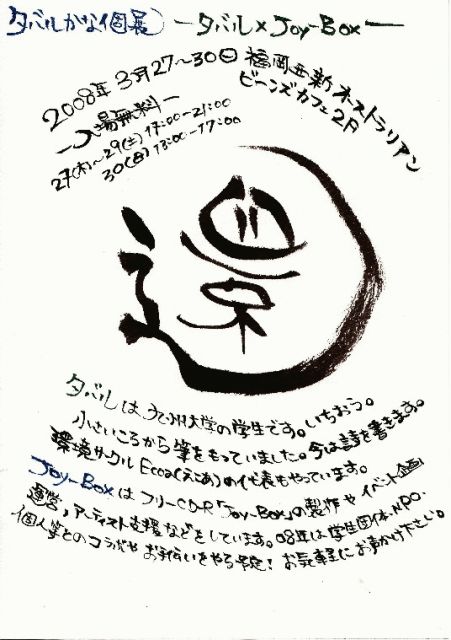 タバルかな個展 ータバル×Joy-Boxー
2008年3月27〜30日 福岡西新オーストラリアン
ビーンズカフェ2F
ー入場無料ー
27(木)〜29(土)17:00-21:00
30(日)13:00-17:00
タバルは、九州大学の学生です。いちおう。
小さいころから筆をもっていました。今は詩を書きます。
環境サークルEcoa(えこあ)の代表もやっています。
Joy-BoxはフリーCD-R「Joy-Box」の製作やイベント企画
運営,アーティスト支援などをしています。08年は学生団体、NPO、
個人等とのコラボやお手伝いをやる予定! お気軽にお声かけ下さい。